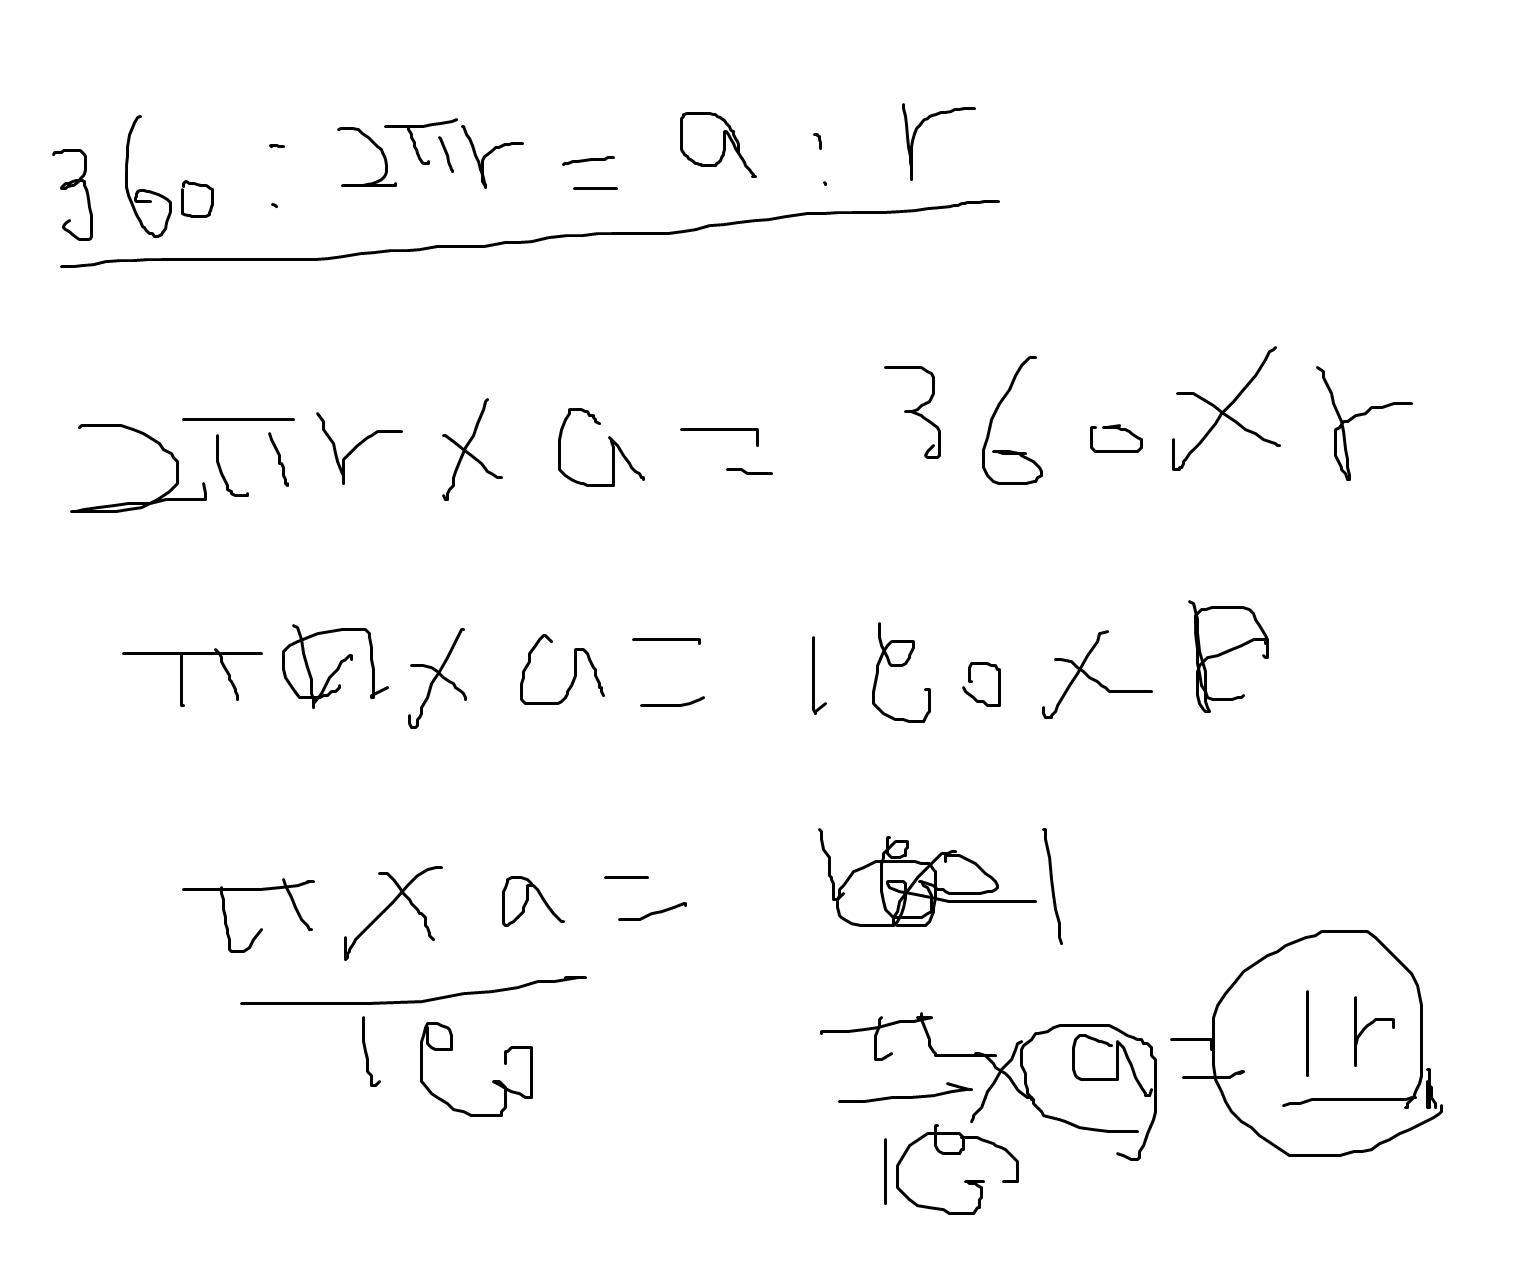 360 : 2πr = a : r
2πr × a = 360 × r
π × a = 180 ×
π × a = 1
180
π/180 × a = 1r